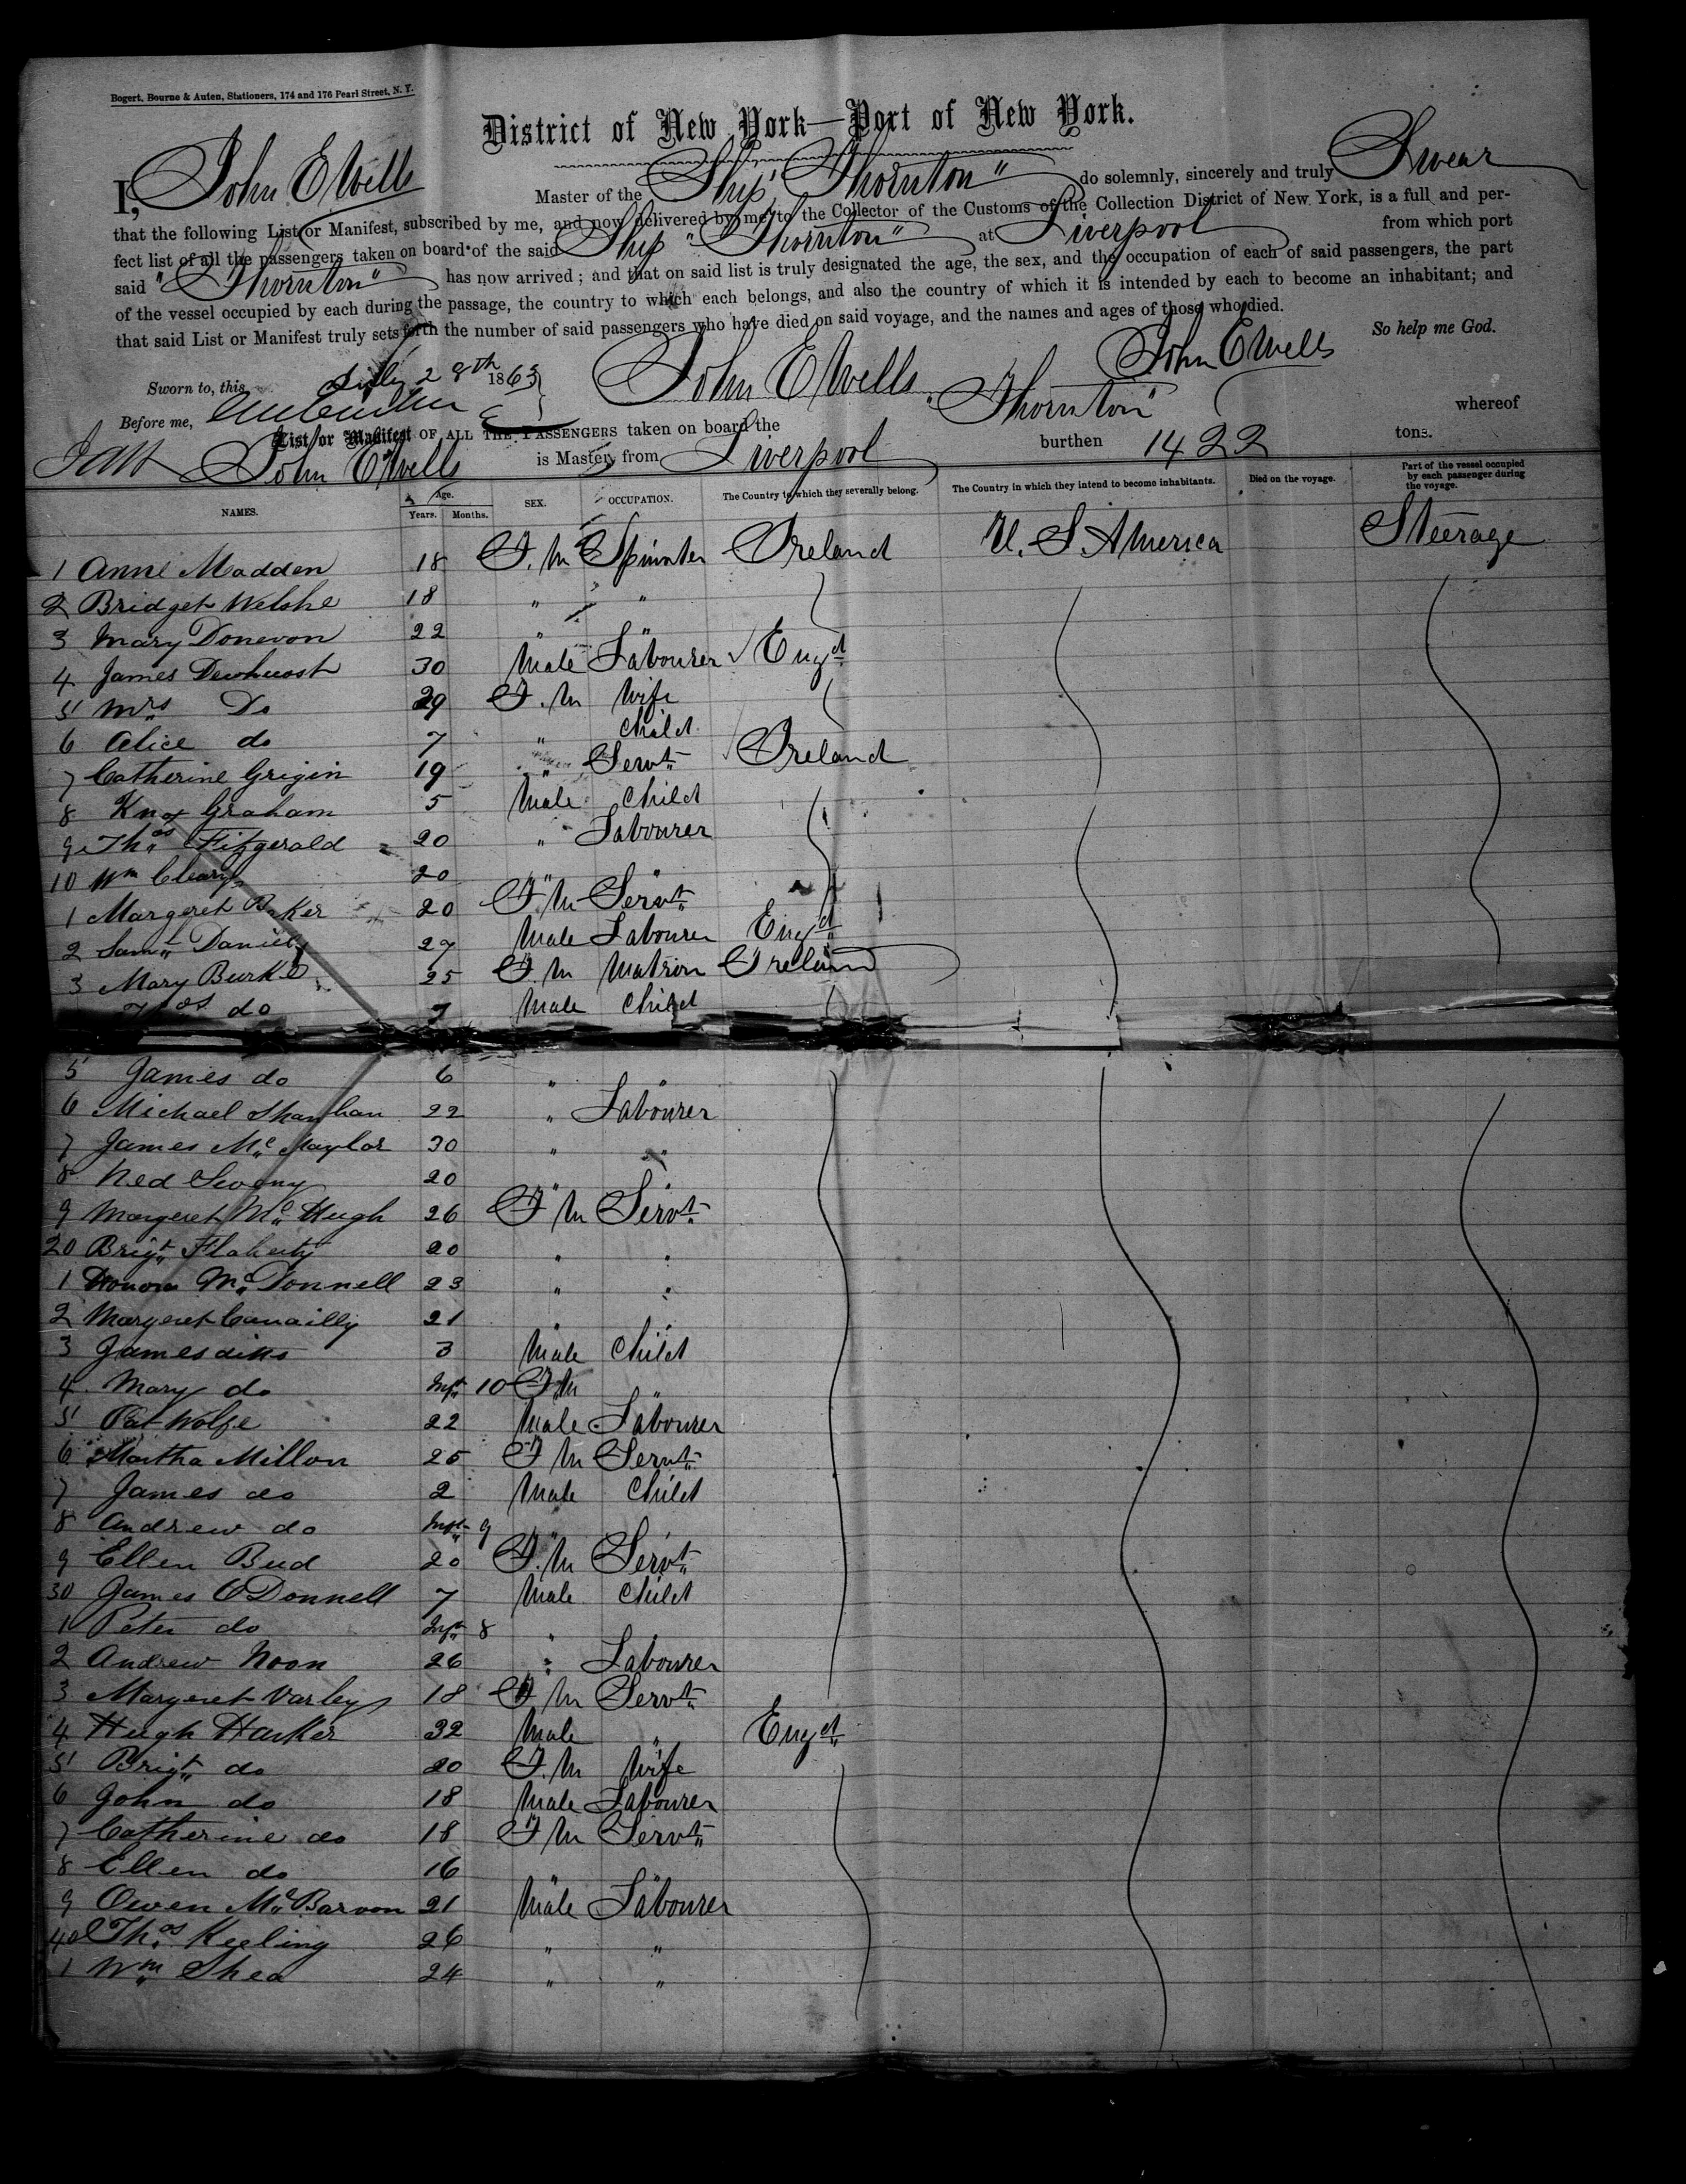 Bogert, Bourne & Auten, Stationers, 174 and 176 Pearl Street, N. Y.
District of New York—Port of New York.
I, John E Wells Master of the Ship "Thornton" do solemnly, sincerely and truly Swear
that the following List or Manifest, subscribed by me, and now delivered by me to the Collector of the Customs of the Collection District of New York, is a full and per-
fect list of all the passengers taken on board of the said Ship "Thornton" at Liverpool from which port
said "Thornton" has now arrived; and that on said list is truly designated the age, the sex, and the occupation of each of said passengers, the part
of the vessel occupied by each during the passage, the country to which each belongs, and also the country of which it is intended by each to become an inhabitant; and
that said List or Manifest truly sets forth the number of said passengers who have died on said voyage, and the names and ages of those who died.
So help me God.
Sworn to, this July 28th 1863 John E Wells John E Wells
Before me,
List or Manifest OF ALL THE PASSENGERS taken on board the "Thornton" whereof
John E Wells is Master, from Liverpool burthen 1422 tons.
NAMES. Age. Years. Months. SEX. OCCUPATION. The Country to which they severally belong. The Country in which they intend to become inhabitants. Died on the voyage. Part of the vessel occupied by each passenger during the voyage.
1 Anne Madden 18 F.M Spinster Ireland U. S. America Steerage
2 Bridget Welshe 18 " "
3 Mary Donevon 22 " "
4 James Dewhurst 30 Male Labourer Engd
5 Mrs Do 29 F.M Wife
6 Alice do 7 " Child
7 Catherine Grigin 19 " Servt Ireland
8 Knox Graham 5 Male Child
9 Thos Fitzgerald 20 " Labourer
10 Wm Cleary 20 " "
1 Margeret Baker 20 F.M Servt
2 Saml Daniels 27 Male Labourer Engd
3 Mary Burke 25 F.M Matron Ireland
Thos do 7 Male Child
5 James do 6 " "
6 Michael Shanhan 22 " Labourer
7 James Mc Naylor 30 " "
8 Ned Sweny 20 " "
9 Margeret Mc Hugh 26 F M Servt
20 Brigt Flaherty 20 " "
1 Honora Mc Donnell 23 " "
2 Margeret Canailly 21 " "
3 James ditto 3 Male Child
4 Mary do Inft 10 F.M "
5 Pat Wolfe 22 Male Labourer
6 Martha Millon 25 F M Servt
7 James do 2 Male Child
8 Andrew do Inft 9 " "
9 Ellen Bud 20 F.M Servt
30 James O'Donnell 7 Male Child
1 Peter do Inft 8 " "
2 Andrew Noon 26 " Labourer
3 Margeret Varley 18 F M Servt
4 Hugh Harker 32 Male " Engd
5 Brigt do 20 F.M Wife
6 John do 18 Male Labourer
7 Catherine do 18 F M Servt
8 Ellen do 16 " "
9 Owen Mc Barvon 21 Male Labourer
40 Thos Keeling 26 " "
1 Wm Shea 24 " "